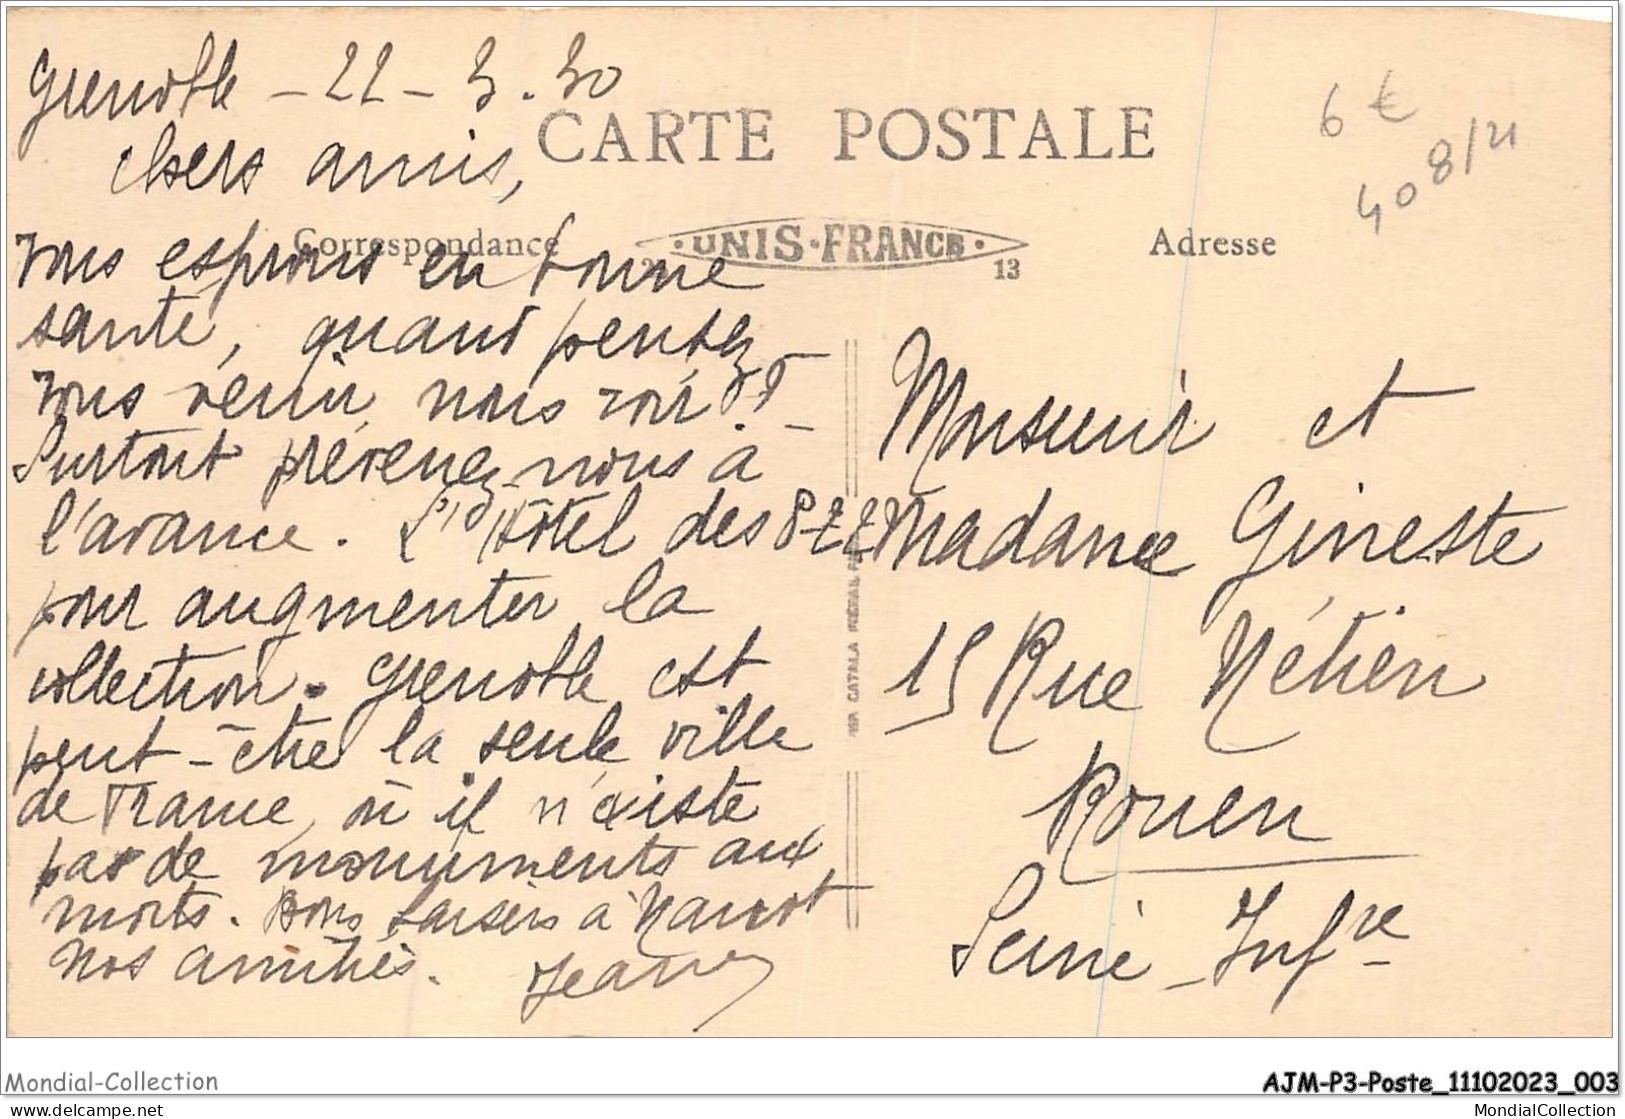 Grenoble - 22 - 3 . 30
CARTE POSTALE
6 €
408/21
Chers amis,
Correspondance
UNIS-FRANCE
13
Adresse
Vous espérons en bonne
santé, quand pensez
vous venir nous voir ? -
Surtout prévenez-nous à
l'avance. L'Hôtel des
pour augmenter la
collection. Grenoble est
peut-être la seule ville
de France où il n'existe
pas de monuments aux
morts. Bons baisers à
Nos amitiés. Jeanne
Monsieur et
Madame Gineste
15 Rue Nétien
Rouen
Seine-Infre
Mondial-Collection
AJM-P3-Poste_11102023_003
https://www.delcampe.net
MondialCollection